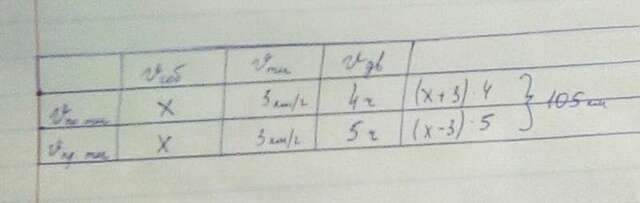 υ соб υ теч υ дв
υ по теч x 3 км/ч 4 ч (x+3)·4
υ пр теч x 3 км/ч 5 ч (x-3)·5
} 105 км